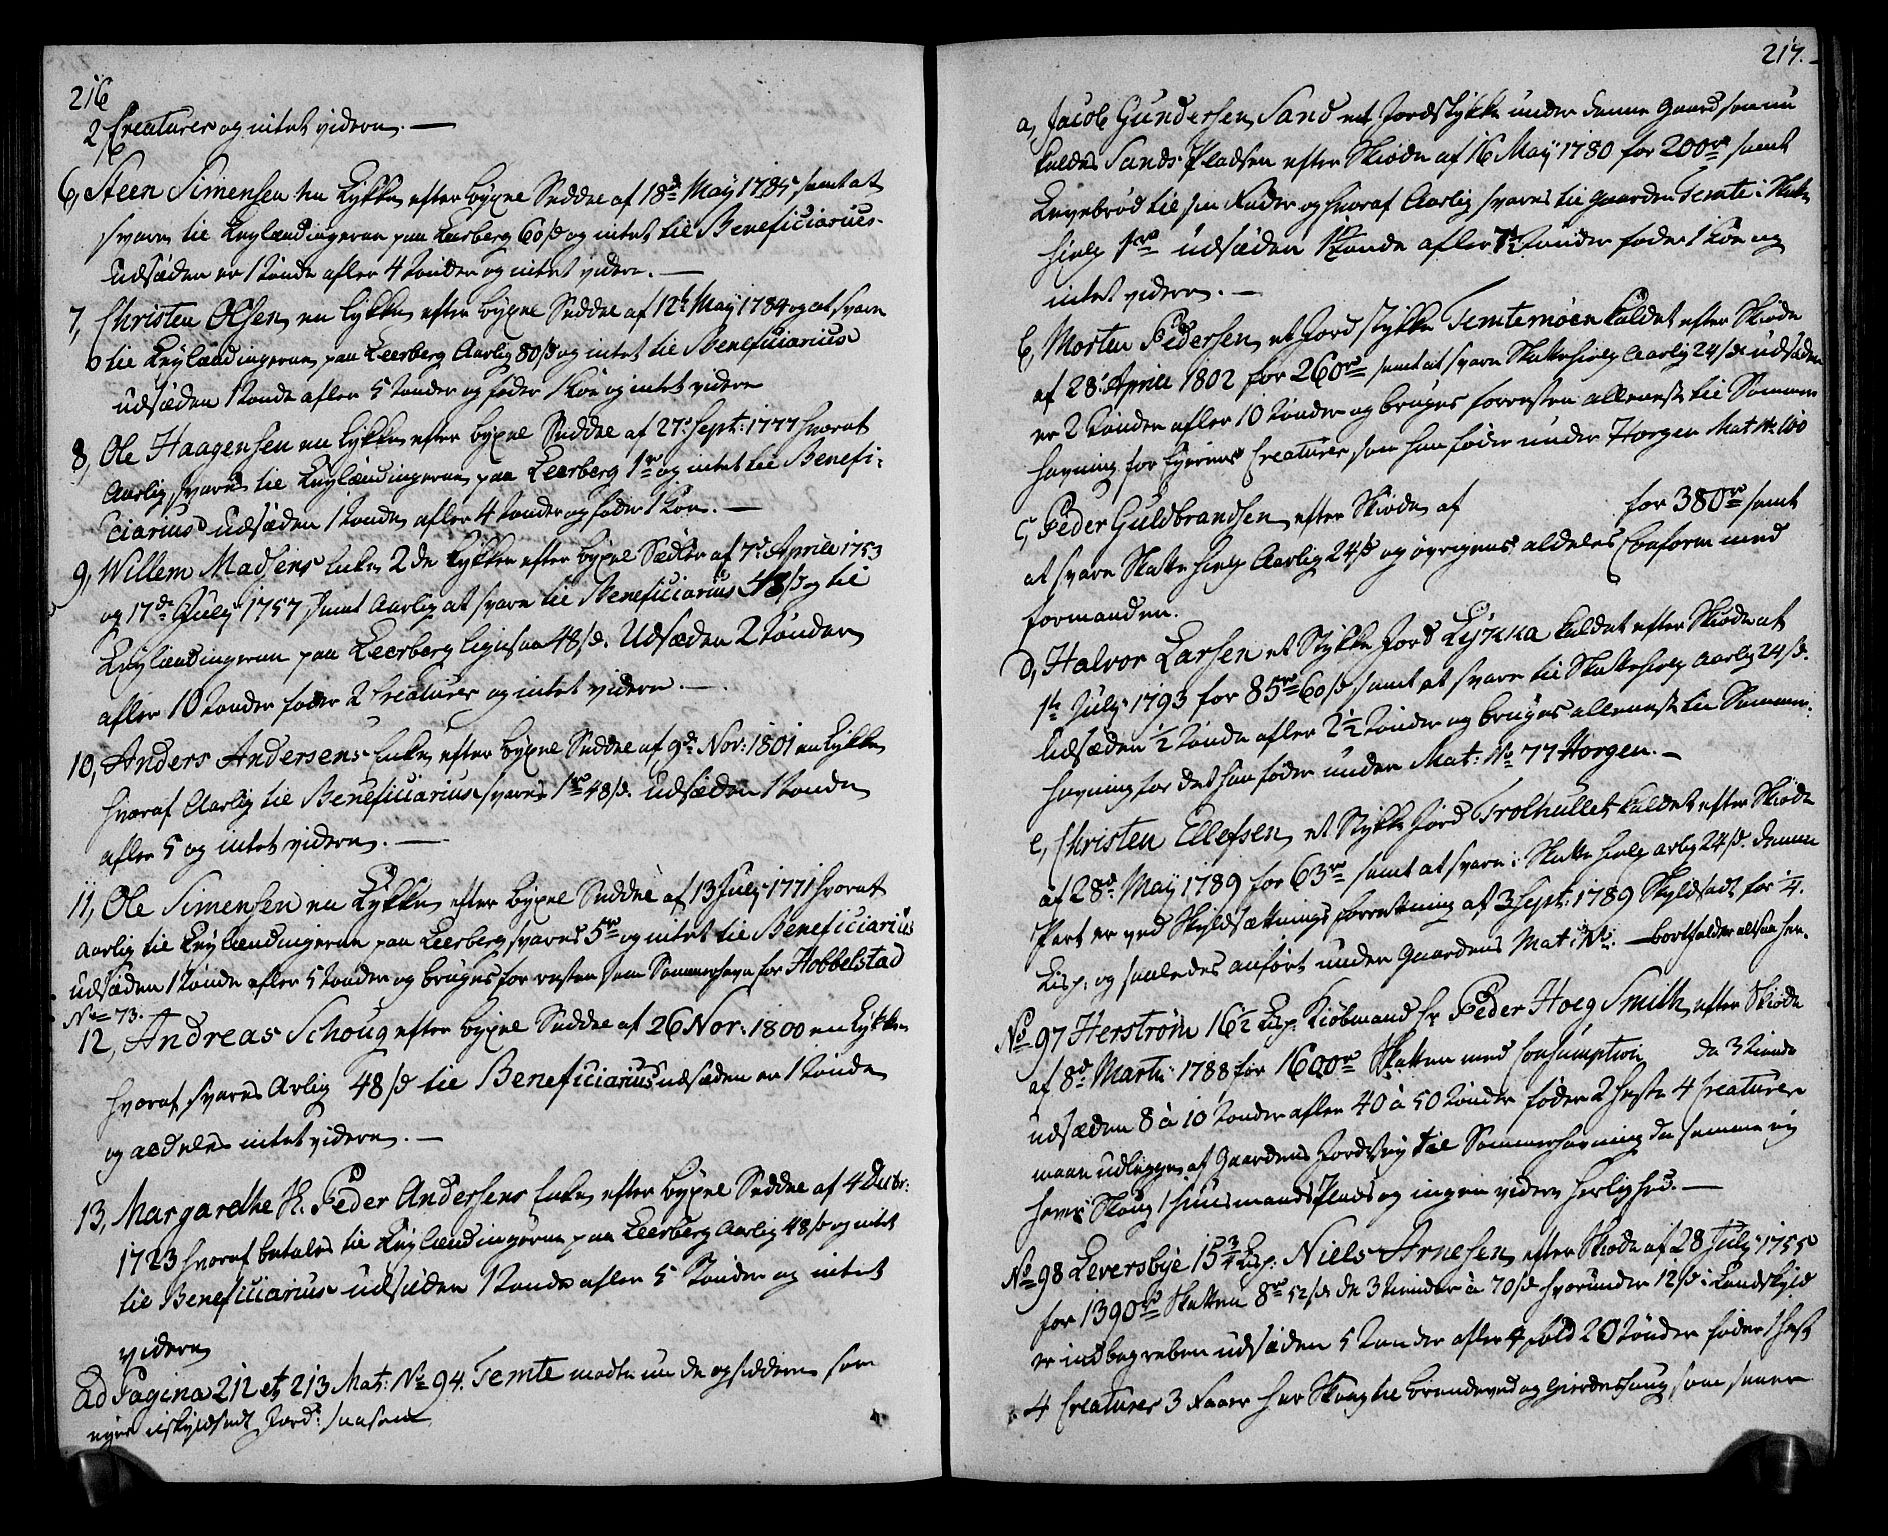 216
2 Creaturer og intet videre. —
6, Steen Simensen en Løkke efter bøxel Seddel af 18de May 1785, samt at
svare til Leylændingerne paa Leerberg 60 s og intet til Beneficiarius
Udsæden er 1 tønde afler 4 tønder og intet videre. —
7, Christen Olsen, en Løkke efter bøxel Seddel af 12te May 1784 og at svare
til Leylændingerne paa Leerberg Aarlig 80 s og intet til Beneficiarius
udsæden 1 tønde afler 5 tønder og føder 1 Koe og intet videre
8, Ole Haagensen en Løkke efter bøxel Seddel af 27de Sept: 1777 hvoraf
Aarlig svares til Leylændingerne paa Leerberg 1 r og intet til Benefi-
ciarius udsæden 1 tønde, afler 4 tønder og føder 1 Koe. —
9, Willem Madsens Enke 2de Løkker efter bøxel Sedler af 7de Aprill 1753
og 17de July 1757 samt Aarlig at svare til Beneficiarius 48 s og til
Leylændingerne paa Leerberg ligesaa 48 s. Udsæden 2 tønder
afler 10 tønder føder 2 Creaturer og intet videre. —
10, Anders Andersens Enke, efter bøxel Seddel af 9de Nov: 1801 en Løkke
hvoraf Aarlig til Beneficiarius svares 1 r 48 s. udsæden 1 tønde
afler 5 og intet videre. —
11, Ole Simensen en Løkke, efter bøxel Seddel af 13 July 1771 hvoraf
Aarlig til Leylændingerne paa Leerberg svares 5 r og intet til Beneficiarius
udsæden 1 tønde afler 5 tønder og bruges for resten som Sommerhavn for Hobbelstad
No 73.
12, Andreas Schoug efter bøxel Seddel af 26 Nov: 1800 en Løkke
hvoraf svares Arlig 48 s til Beneficiarius udsæden er 1 tønde
og aldeles intet videre. —
13, Margarethe Sl. Peder Andersens Enke, efter bøxel Seddel af 4 Decbr:
1723 hvoraf betales til Leylændingerne paa Leerberg Aarlig 48 s og intet
til Beneficiarius udsæden 1 tønde afler 5 tønder og intet
videre
Ad Pagina 212 et 213 Mat: No 94. Temte mødte nu de opsiddere som
eyer uskyldsadt Jord: saasom
217.
a, Jacob Gundersen Sand et Jordstykke under denne Gaard som nu
kaldes Sands Pladsen efter Skiøde af 16 May 1780 for 200 r samt
Levebrød til sin Fader og hvoraf Aarlig svares til Gaarden Temte i Skatte
hielp 1 r udsæden tønde afler tønder føder 1 Koe og
intet videre. —
b, Morten Pedersen, et Jord stykke Temtemoen kaldet efter Skiøde
af 28 Aprill 1802 for 260 r samt at svare Skattehielp Aarlig 24 s. udsæden
er 2 tønder afler 10 tønder og bruges forresten alleneste til Sommer
havning for Eyerens Creaturer som han føder under Horgen Mat No 100
c, Peder Guldbrandsen, efter Skiøde af for 380 r samt
at svare Skatte hielp Aarlig 24 s og øvrigens aldeles Conform med
formanden.
d, Halvor Larsen et Stykke Jord Løkka kaldet efter Skiøde af
1te July 1793 for 85 r 60 s samt at svare til Skattehielp Aarlig 24 s.
Udsæden 1/2 tønde afler 2 1/2 tønder og bruges alleneste til Sommer-
havning for det han føder under Mat: No 77 Horgen. —
e, Christen Ellefsen, et Stykke Jord Trolhullet kaldet efter Skiøde
af 28de May 1789 for 63 r samt at svare i Skatte hielp arlig 24 s. denne
Part er ved Skyldsætnings forretning af 3 Sept: 1789 Skyldsadt for 1/4.
Lisp: og saaledes anført under Gaardens Mat: No. — bortfalder altsaa her.
No 97 Herstrøm 16 1/2 Lisp. Kiøbmand Hr Peder Hoeg Smith efter Skiøde
af 8de Marti 1788 for 1600 r Skatten med Consumption de 3 tiende
udsæden 8 à 10 tønder afler 40 à 50 tønder føder 2 heste 4 Creaturer
maae udlegges af Gaardens Jordvey til Sommerhavning da samme ey
haver Skoug 1 huusmands Plads og ingen videre herlighed. —
No 98 Leversbye 15 3/4 Lisp. Niels Arnesen, efter Skiøde af 28 July 1755
for 1390 r Skatten 8 r 52 s de 3 tiender à 70 s hvorunder 12 s i Landskyld
er indbegreben udsæden 5 tønder afler 4 fold 20 tønder føder 1 hest
4 Creaturer 3 Faaer har Skoug til brændeved og Gierdesfang som sauer